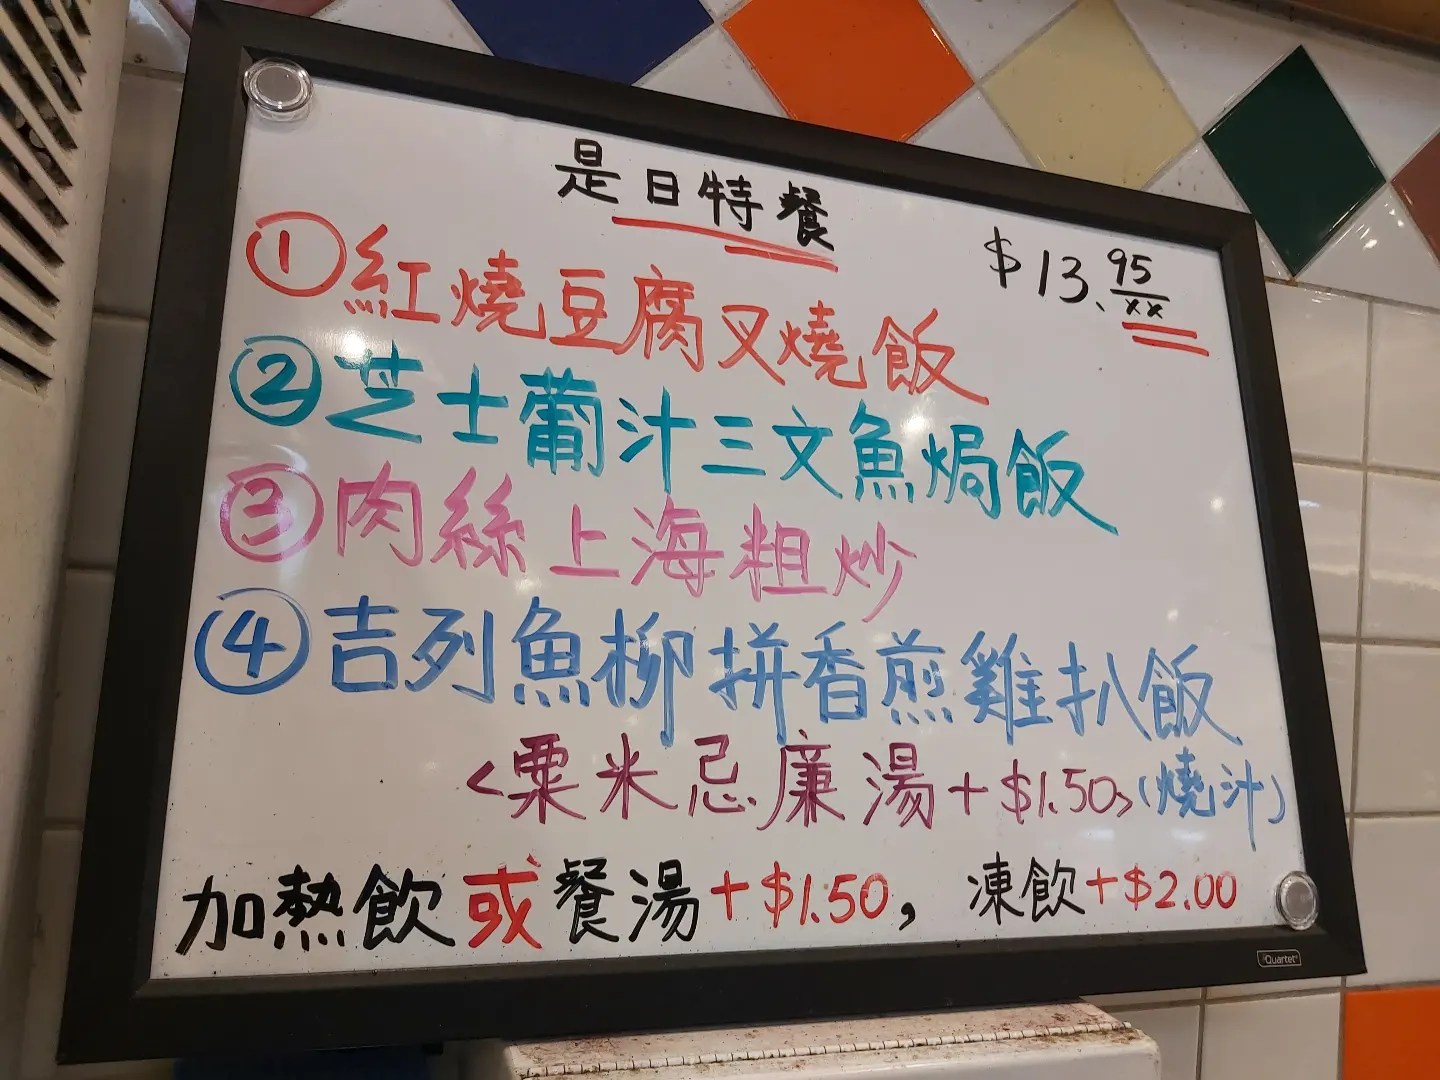 是日特餐
$13.95/xx
①紅燒豆腐叉燒飯
②芝士葡汁三文魚焗飯
③肉絲上海粗炒
④吉列魚柳拼香煎雞扒飯
<粟米忌廉湯+$1.50>(燒汁)
加熱飲或餐湯+$1.50, 凍飲+$2.00
Quartet